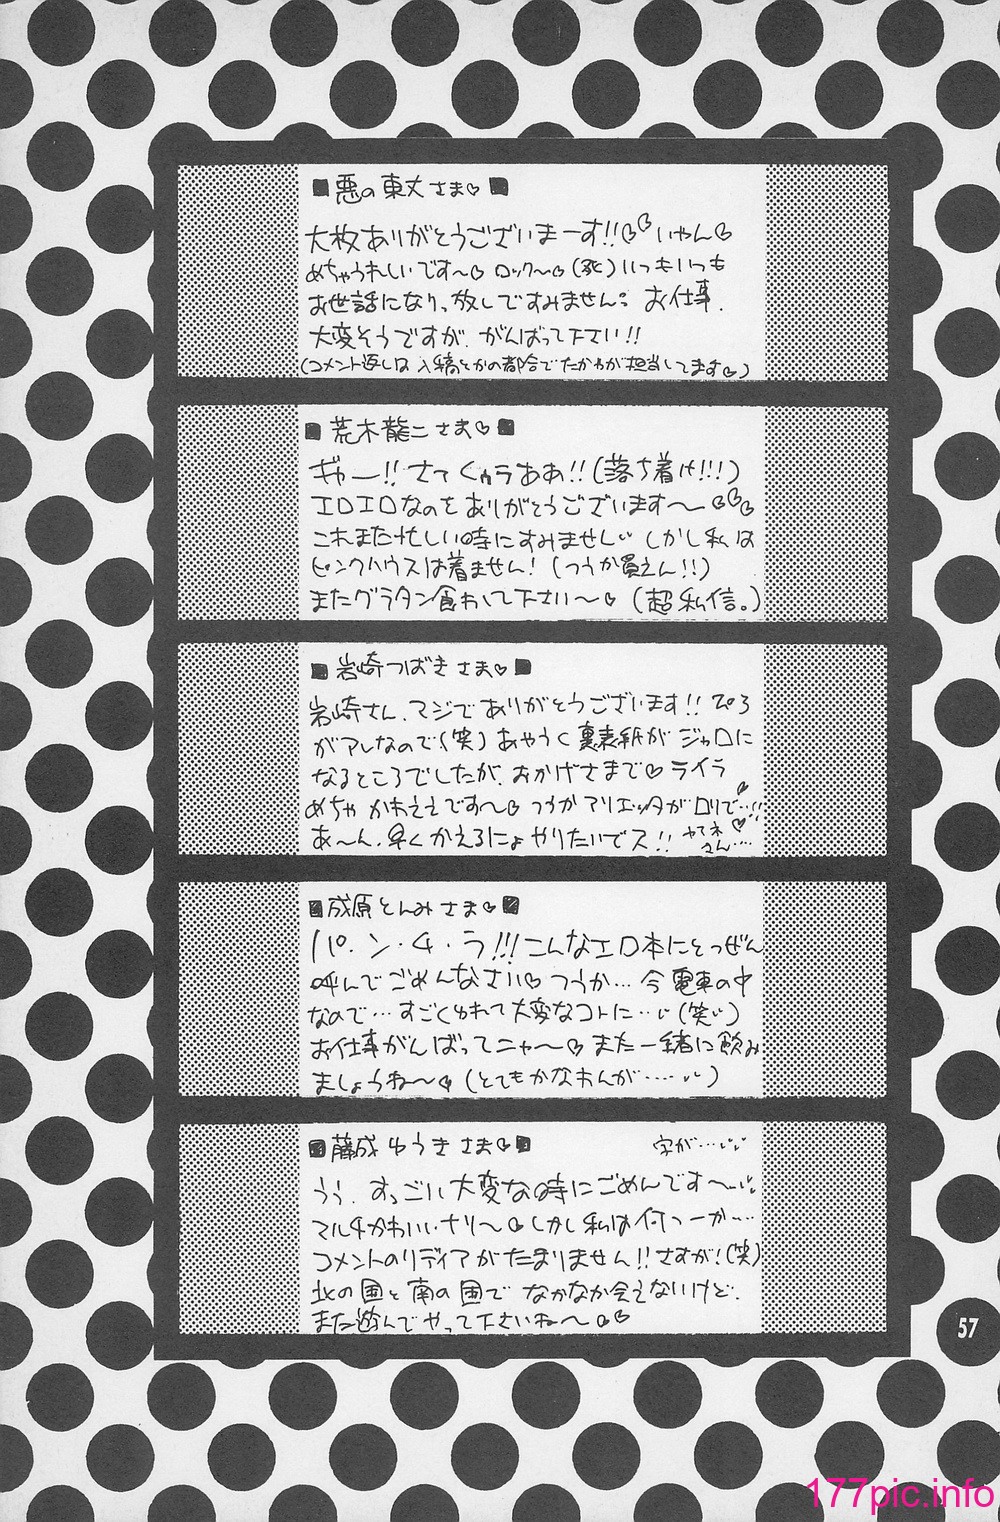 ■悪の東丈さま♡■
大枚ありがとうございまーす!!♡♡いやん♡
めちゃうれしいです〜♡ロック〜♡(死)いつもいつも
お世話になりっ放しですみません。お仕事、
大変そうですが、がんばって下さい!!
(コメント返しは入稿とかの都合でたかやが担当してます♡)
■荒木龍二さま♡■
ギャー!!さてくぅラああ!!(落ち着け!!!)
エロエロなのをありがとうございます〜♡♡♡
これまた忙しい時にすみません しかし私は
ピンクハウスは着ません!(つうか買えん!!)
またグラタン食わして下さい〜♡(超私信。)
■岩崎つばきさま♡■
岩崎さん、マジでありがとうございます!!ところ
がアレなので(笑)あやうく裏表紙がジャロに
なるところでしたが、おかげさまで♡ライラ
めちゃかわええです〜♡つうかアリエッタがロリで…!!
あ〜ん、早くかえるにょやりたいでス!!ヤマネ
さん……
■成原とんみさま♡■
パ・ン・チ・ラ!!!こんなエロ本にとつぜん
呼んでごめんなさい♡つうか…今電車の中
なので…すごくゆれて大変なコトに…(笑)
お仕事がんばってニャ〜♡また一緒に飲み
ましょうね〜♡(とてもかなわんが……)
■藤成ゆうきさま♡■ 字が…
うぅ、すっごい大変な時にごめんです〜
マルチかわいいナリ〜♡しかし私は付つーか…
コメントのリディアがたまりません!!さすが!(笑)
北の国と南の国でなかなか会えないけど、
また遊んでやって下さいね〜♡♡
57
177pic.info